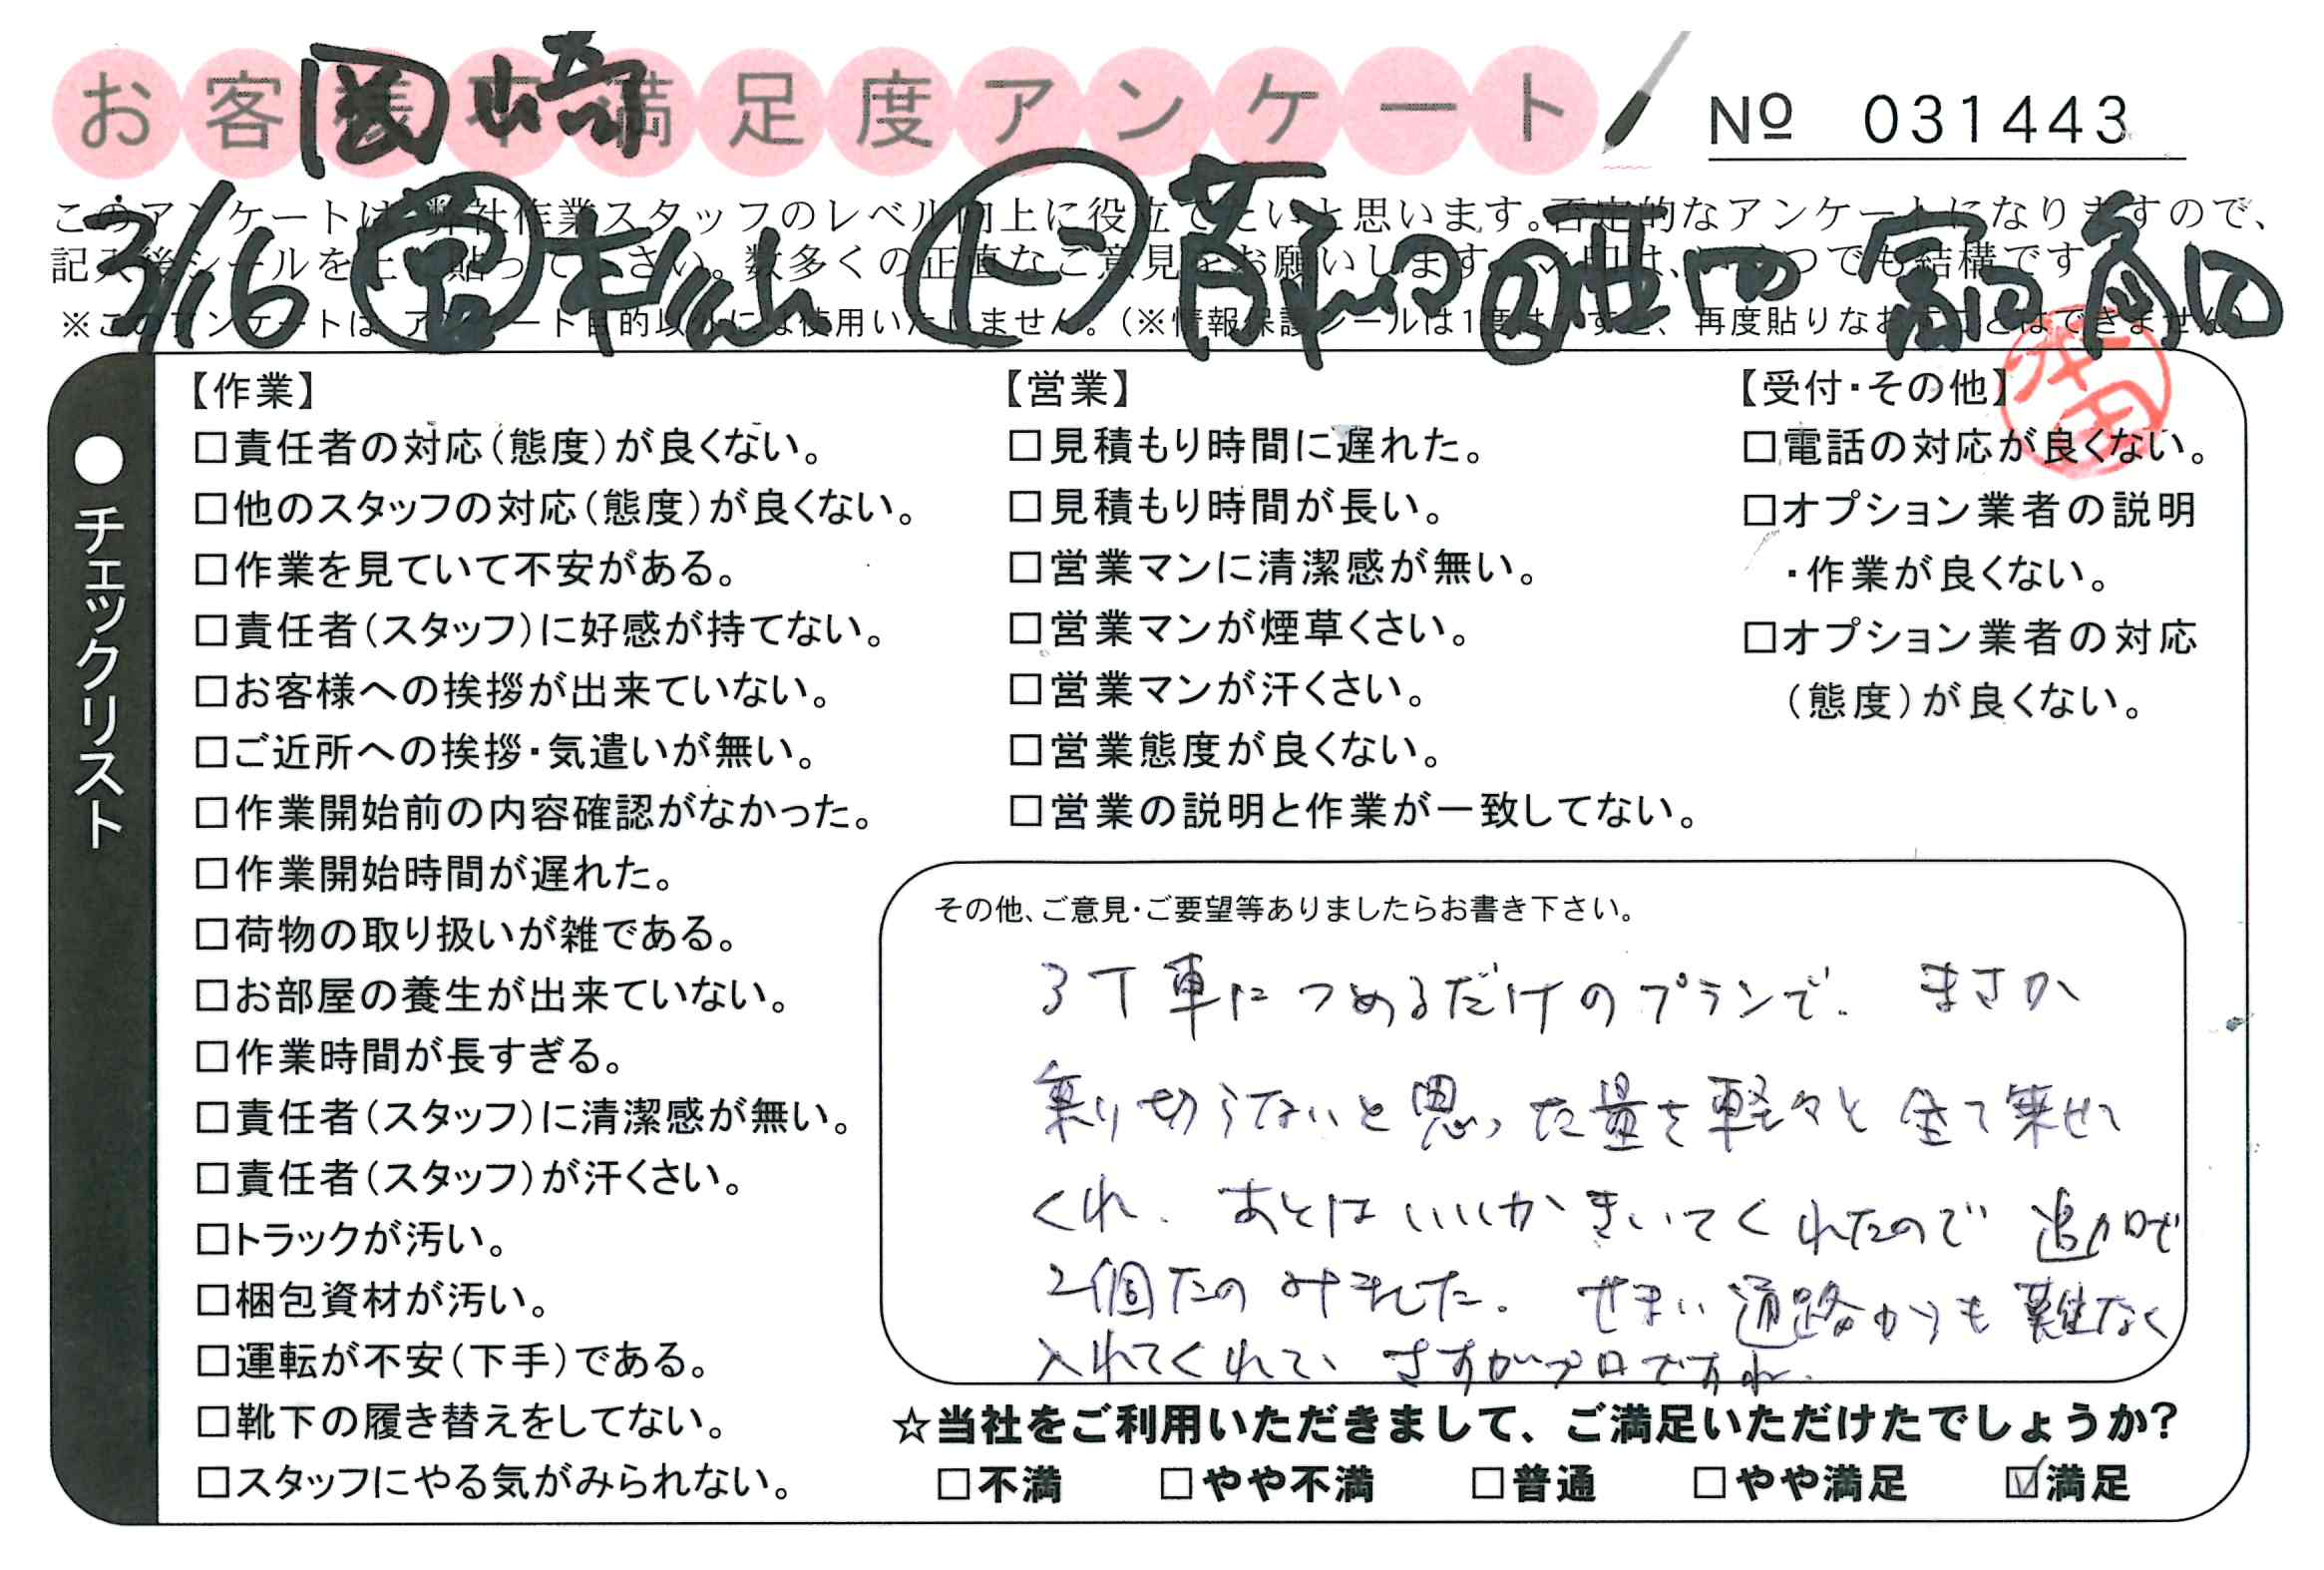 お客様不満足度アンケート
№ 031443
岡崎
このアンケートは、弊社作業スタッフのレベル向上に役立てたいと思います。否定的なアンケートになりますので、
記入後シールを上に貼って下さい。数多くの正直なご意見をお願いします。レ印は、いくつでも結構です。
3/16 営 松山
※このアンケートは、アンケート目的以外には使用いたしません。(※情報保護シールは1度はがすと、再度貼りなおすことはできません)
●チェックリスト
【作業】
□責任者の対応(態度)が良くない。
□他のスタッフの対応(態度)が良くない。
□作業を見ていて不安がある。
□責任者(スタッフ)に好感が持てない。
□お客様への挨拶が出来ていない。
□ご近所への挨拶・気遣いが無い。
□作業開始前の内容確認がなかった。
□作業開始時間が遅れた。
□荷物の取り扱いが雑である。
□お部屋の養生が出来ていない。
□作業時間が長すぎる。
□責任者(スタッフ)に清潔感が無い。
□責任者(スタッフ)が汗くさい。
□トラックが汚い。
□梱包資材が汚い。
□運転が不安(下手)である。
□靴下の履き替えをしてない。
□スタッフにやる気がみられない。
【営業】
□見積もり時間に遅れた。
□見積もり時間が長い。
□営業マンに清潔感が無い。
□営業マンが煙草くさい。
□営業マンが汗くさい。
□営業態度が良くない。
□営業の説明と作業が一致してない。
【受付・その他】
□電話の対応が良くない。
□オプション業者の説明
・作業が良くない。
□オプション業者の対応
(態度)が良くない。
その他、ご意見・ご要望等ありましたらお書き下さい。
3T車につめるだけのプランで、まさか
乗り切らないと思った量を軽々と全て乗せて
くれ、あとはいいかきいてくれたので追加で
2個たのみました。せまい通路からも難なく
入れてくれて、さすがプロですね。
☆当社をご利用いただきまして、ご満足いただけたでしょうか?
□不満 □やや不満 □普通 □やや満足 ☑満足